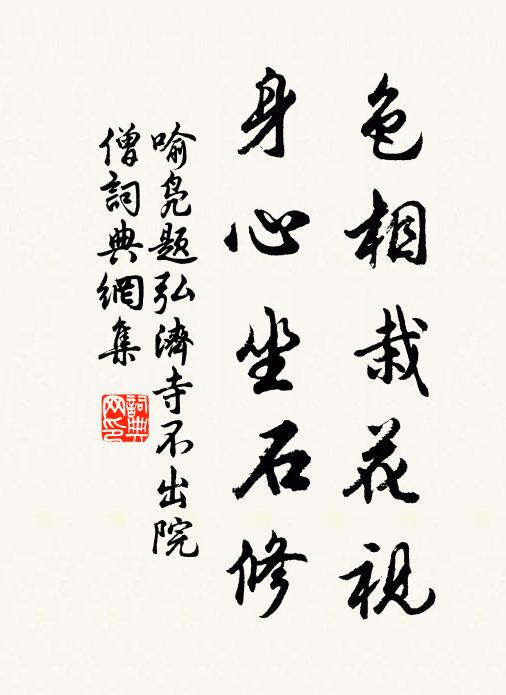 色相栽花視
身心坐石修
喻凫題弘濟寺不出院
僧詞典網集
詞典網印